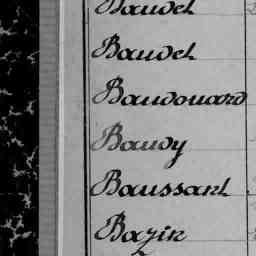 Baudet
Baudet
Baudouard
Baudy
Baussart
Bazin